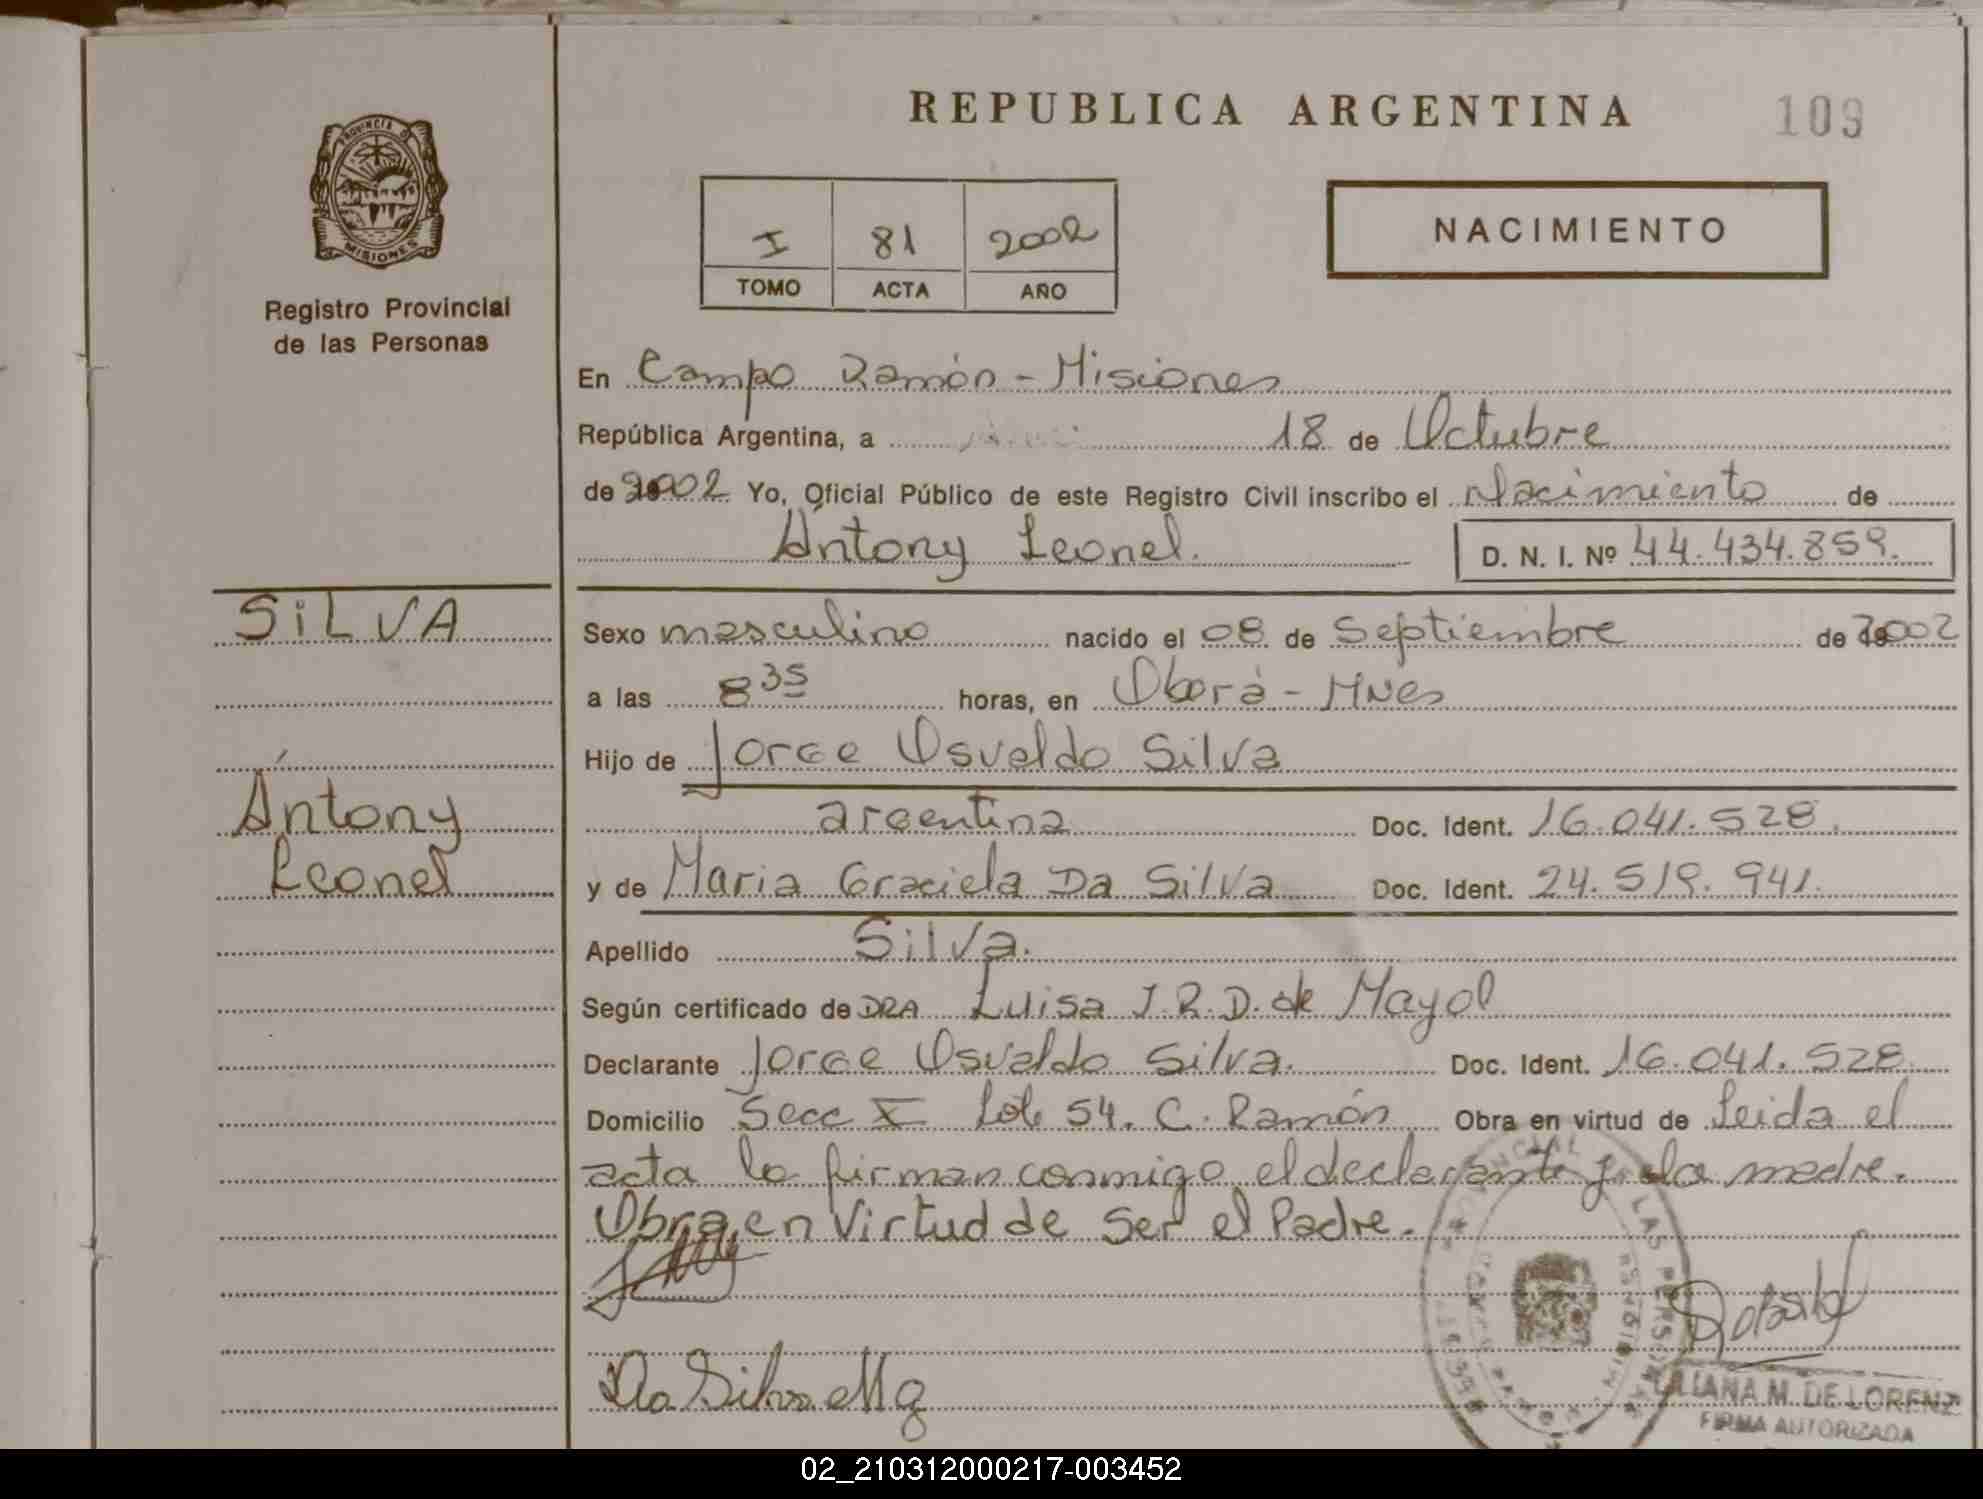 REPUBLICA ARGENTINA
109
PROVINCIA DE MISIONES
Registro Provincial
de las Personas
I 81 2002
TOMO ACTA AÑO
NACIMIENTO
En Campo Ramón - Misiones
República Argentina, a 18 de Octubre
de 2002 Yo, Oficial Público de este Registro Civil inscribo el Nacimiento de
Ántony Leonel.
D. N. I. Nº 44.434.859.
SiLVA
Ántony
Leonel
Sexo masculino nacido el 08 de Septiembre de 2002
a las 8 35 horas, en Oberá - Mnes
Hijo de Jorge Osvaldo Silva
argentina Doc. Ident. 16.041.528.
y de Maria Graciela Da Silva Doc. Ident. 24.519.941.
Apellido Silva.
Según certificado de DRA Luisa I.R.D. de Mayol
Declarante Jorge Osvaldo Silva. Doc. Ident. 16.041.528.
Domicilio Secc X Lote 54. C. Ramón Obra en virtud de Leida el
acta la firman conmigo el declarante y la madre.
Obra en Virtud de Ser el Padre.
Da Silva M g
PROVINCIAL DE LAS PERSONAS
LILIANA M. DE LORENZ
FIRMA AUTORIZADA
02_210312000217-003452